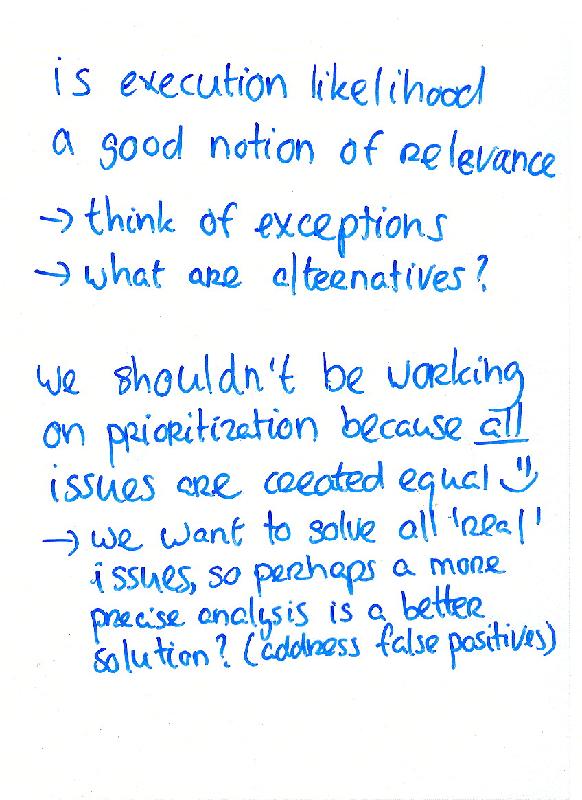 is execution likelihood
a good notion of relevance
→ think of exceptions
→ what are alternatives?
we shouldn't be working
on prioritization because all
issues are created equal
→ we want to solve all 'real'
issues, so perhaps a more
precise analysis is a better
solution? (address false positives)